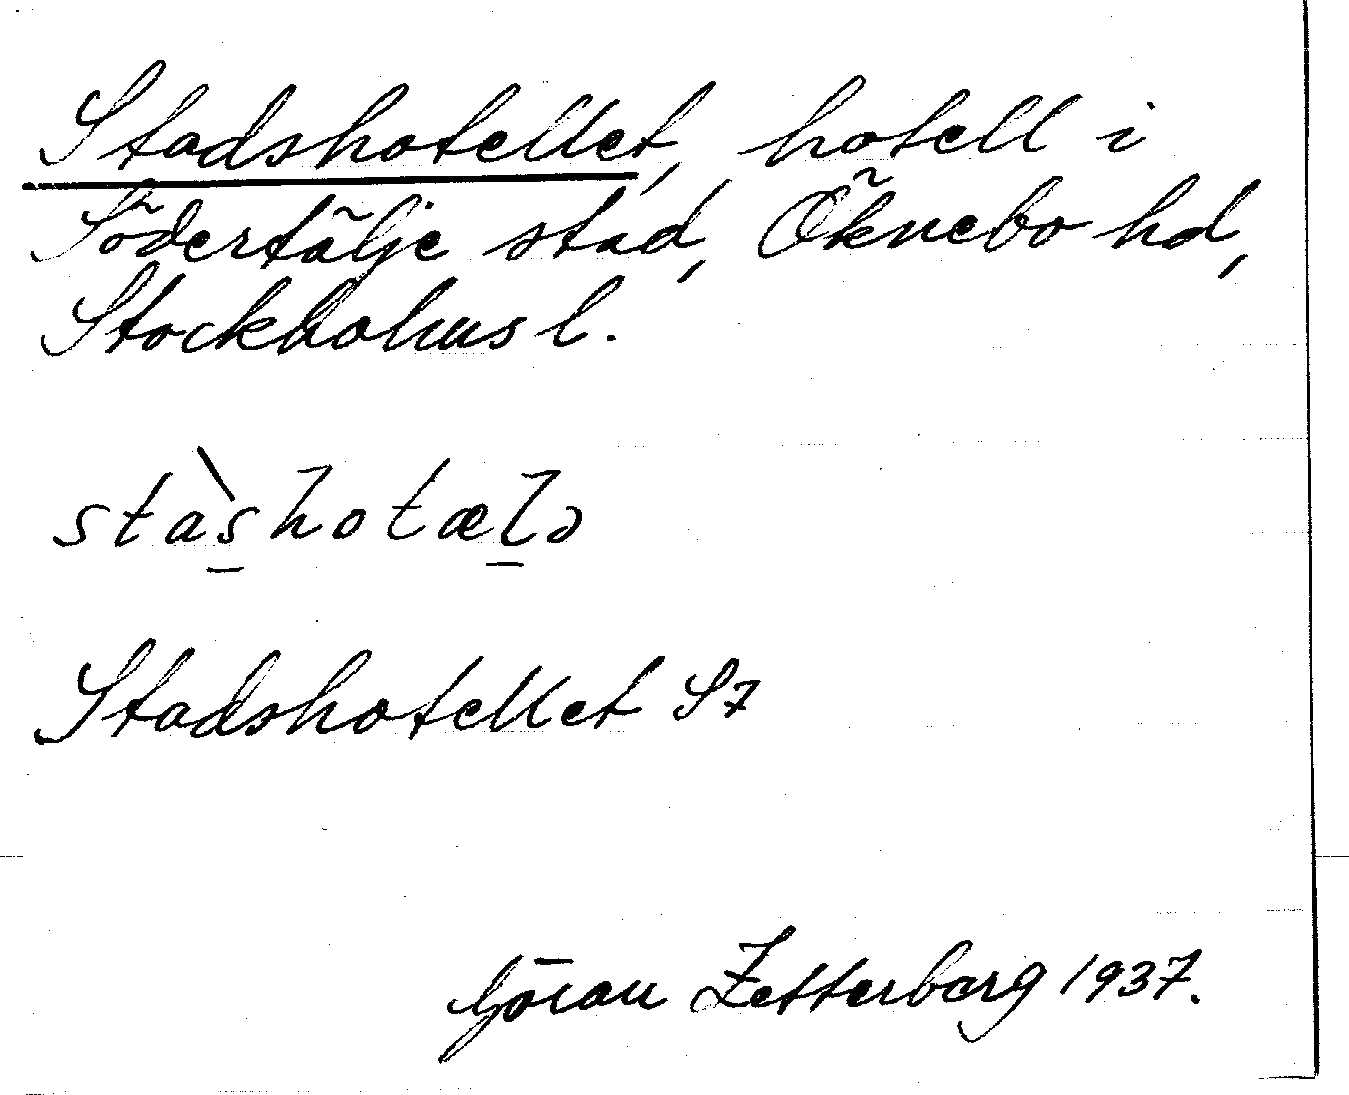 Stadshotellet, hotell i
Södertälje stad, Öknebo hd,
Stockholms l.
stàs̲hotæl̲ə
Stadshotellet S7
Göran Zetterberg 1937.